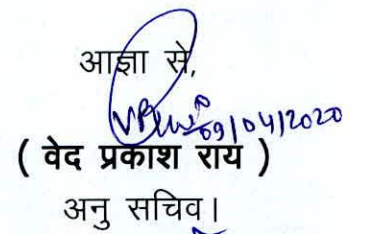 आज्ञा से,
09/04/2020
( वेद प्रकाश राय )
अनु सचिव।